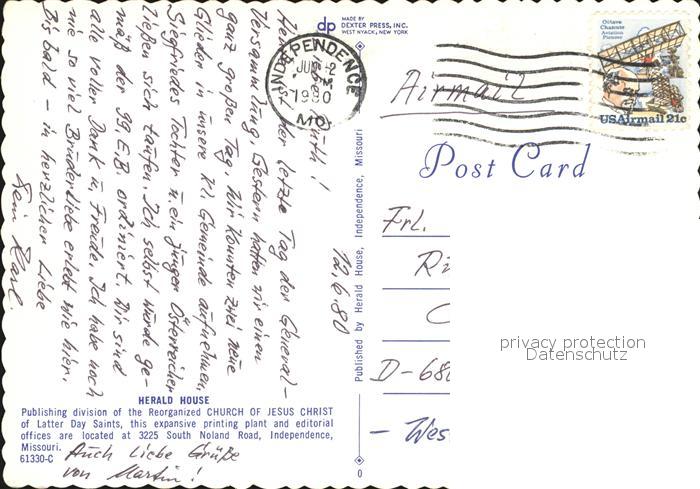 dp
MADE BY
DEXTER PRESS, INC.
WEST NYACK, NEW YORK
INDEPENDENCE
JUN-2
PM
1980
MO
Octave
Chanute
Aviation
Pioneer
USAirmail 21c
Airmail
Post Card
12.6.80
Liebe Ruth!
Heute ist der letzte Tag der General-
versammlung. Gestern hatten wir einen
ganz großen Tag. Wir konnten zwei neue
Glieder in unsere kl. Gemeinde aufnehmen.
Siegfriedes Tochter u. ein junger Österreicher
ließen sich taufen. Ich selbst wurde ge-
mäß der 99, E.B. ordiniert. Dir sind
alle voller Dank u. Freude. Ich habe noch
nie so viel Bruderliebe erlebt wie hier.
Bis bald – in herzlicher Liebe
Dein Karl.
Published by Herald House, Independence, Missouri
Frl.
Ri
C
D-680
- Wes
privacy protection
Datenschutz
HERALD HOUSE
Publishing division of the Reorganized CHURCH OF JESUS CHRIST
of Latter Day Saints, this expansive printing plant and editorial
offices are located at 3225 South Noland Road, Independence,
Missouri.
61330-C
Auch liebe Grüße
von Martin!
0